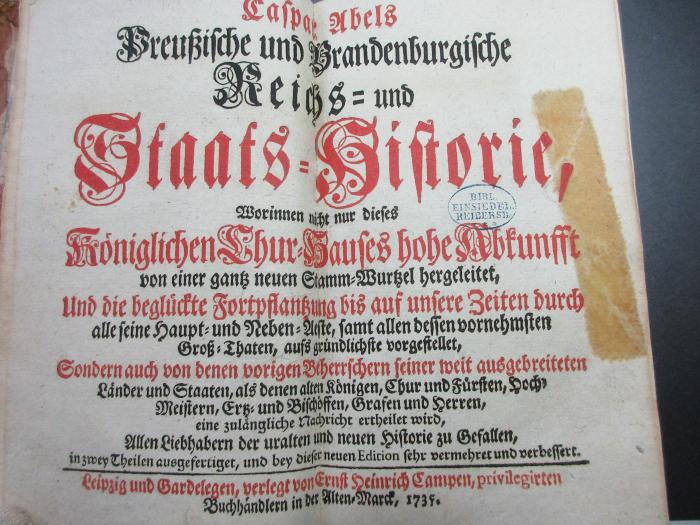 Caspar Abels
Preußische und Brandenburgische
Reichs- und
Staats-Historie,
Worinnen nicht nur dieses
Königlichen Chur-Hauses hohe Abkunfft
von einer gantz neuen Stamm-Wurtzel hergeleitet,
Und die beglückte Fortpflantzung bis auf unsere Zeiten durch
alle seine Haupt- und Neben-Aeste, samt allen dessen vornehmsten
Groß-Thaten, aufs gründlichste vorgestellet,
Sondern auch von denen vorigen Beherrschern seiner weit ausgebreiteten
Länder und Staaten, als denen alten Königen, Chur und Fürsten, Hoch-
Meistern, Ertz- und Bischöffen, Grafen und Herren,
eine zulängliche Nachricht ertheilet wird,
Allen Liebhabern der uralten und neuen Historie zu Gefallen,
in zwey Theilen ausgefertiget, und bey dieser neuen Edition sehr vermehret und verbessert.
Leipzig und Gardelegen, verlegt von Ernst Heinrich Campen, privilegirten
Buchhändlern in der Alten-Marck, 1735.
BIBL.
EINSIEDEL.
REIBERSD.